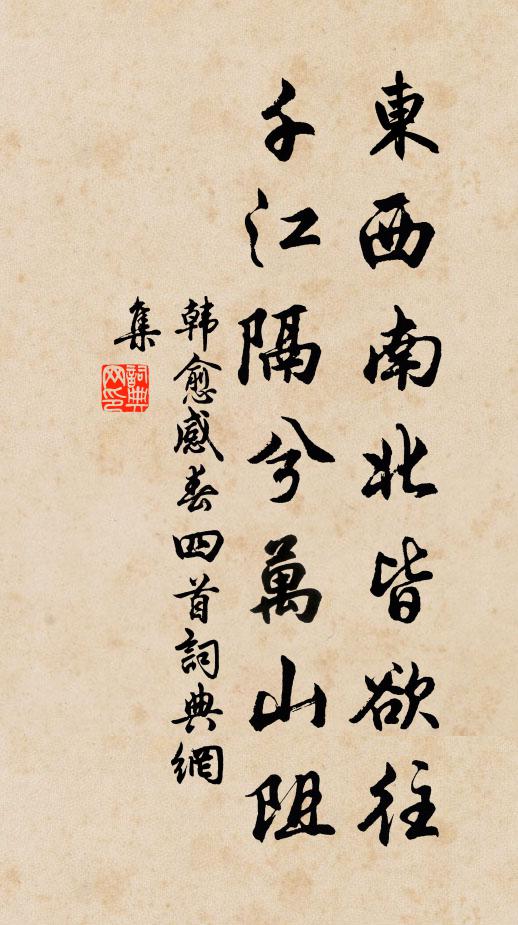 東西南北皆欲往
千江隔兮萬山阻
韩愈感春四首詞典網
集
詞典網印